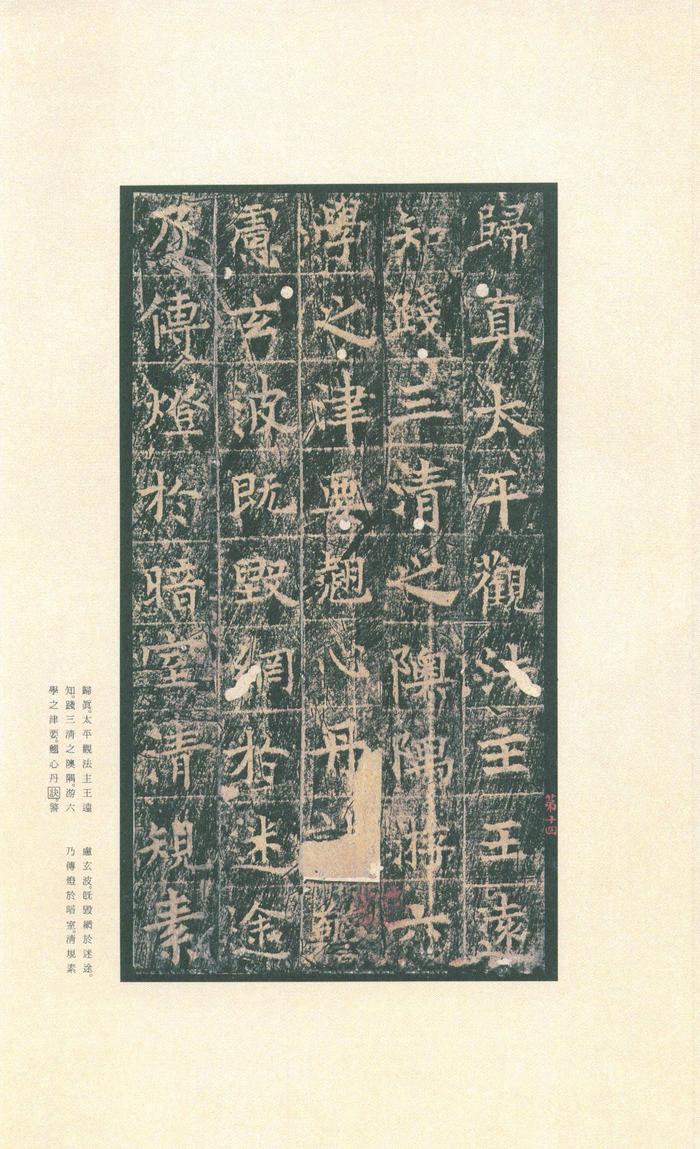 歸真太平觀法主王遠
知踐三清之隩隅游六
學之津要翹心丹
慮玄波既毀網於迷途
乃傳燈於暗室清規素
第十四
歸眞。太平觀法主王遠
知。踐三清之隩隅。游六
學之津要。翹心丹訣。警
慮玄波。旣毀網於迷途。
乃傳燈於暗室。清規素